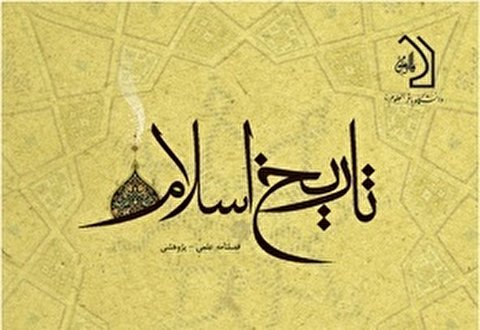 دانشگاه باقرالعلوم
تاریخ اسلام
فصلنامه علمی - پژوهشی